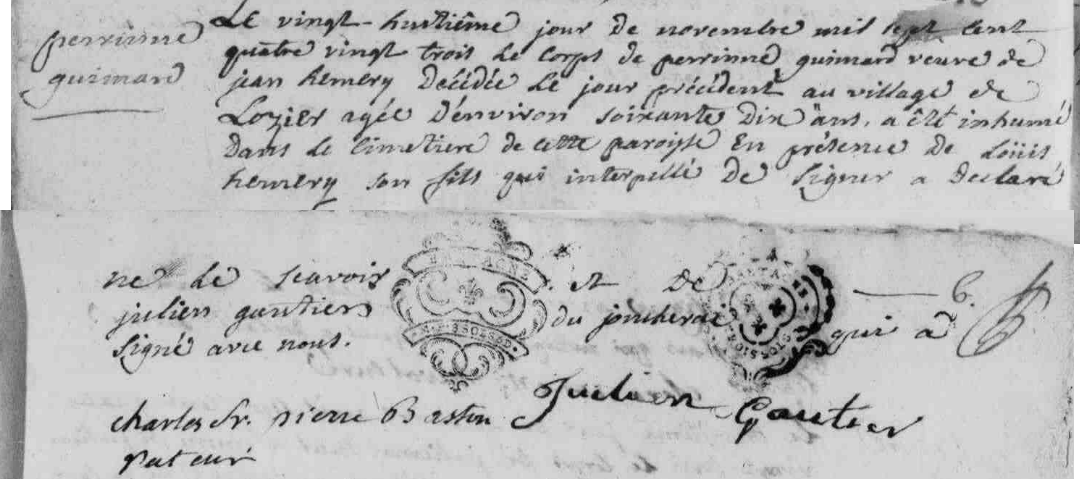 perrinne
guimard
Le vingt-huitiême jour de novembre mil sept cent
quatre vingt trois le corps de perrinne guimard veuve de
jean hemery décédée le jour précédent au village de
Lozier agée d'environ soixante dix ans, a êté inhumé
dans le cimetiere de cette paroisse en présence de Loüis
hemery son fils qui interpellé de signer a déclaré
ne le scavoir et de
julien gautier du qui a
signé avec nous.
BRETAGNE
Julien Gautier
charles fr. pierre Bastin